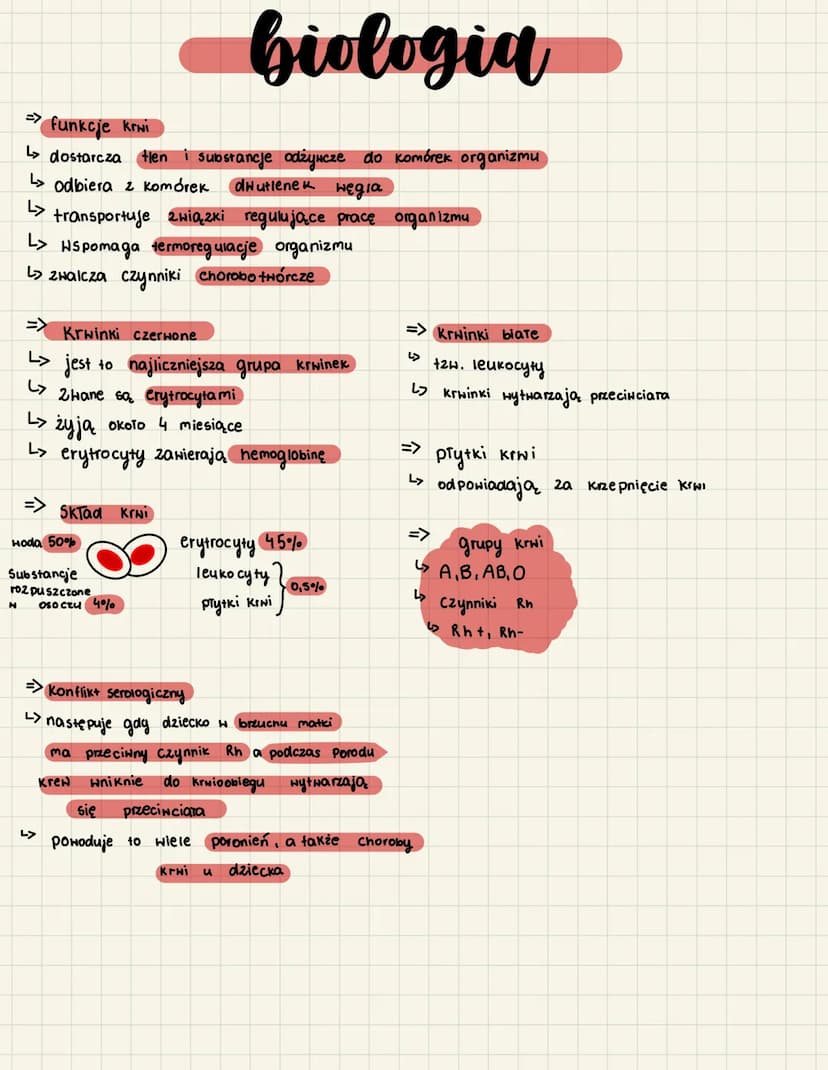 biologia
=> funkcje krwi
↳ dostarcza tlen i substancje odżywcze do komórek organizmu
↳ odbiera z komórek dwutlenek węgla
↳ transportuje związki regulujące pracę organizmu
↳ wspomaga termoregulacje organizmu
↳ zwalcza czynniki chorobotwórcze
=> Krwinki czerwone
↳ jest to najliczniejsza grupa krwinek
↳ zwane są erytrocytami
↳ żyją około 4 miesiące
↳ erytrocyty zawierają hemoglobinę
=> Krwinki białe
↳ tzw. leukocyty
↳ krwinki wytwarzają przeciwciała
=> płytki krwi
↳ odpowiadają za krzepnięcie krwi
=> Skład krwi
woda 50%
Substancje
rozpuszczone
w osoczu 4%
erytrocyty 45%
leukocyty
płytki krwi
0,5%
=> grupy krwi
↳ A,B,AB,O
↳ czynniki Rh
↳ Rh+, Rh-
=> Konflikt serologiczny
↳ następuje gdy dziecko w brzuchu matki
ma przeciwny czynnik Rh a podczas porodu
krew wniknie do krwioobiegu wytwarzają
się przeciwciała
↳ powoduje to wiele poronień, a także choroby
krwi u dziecka